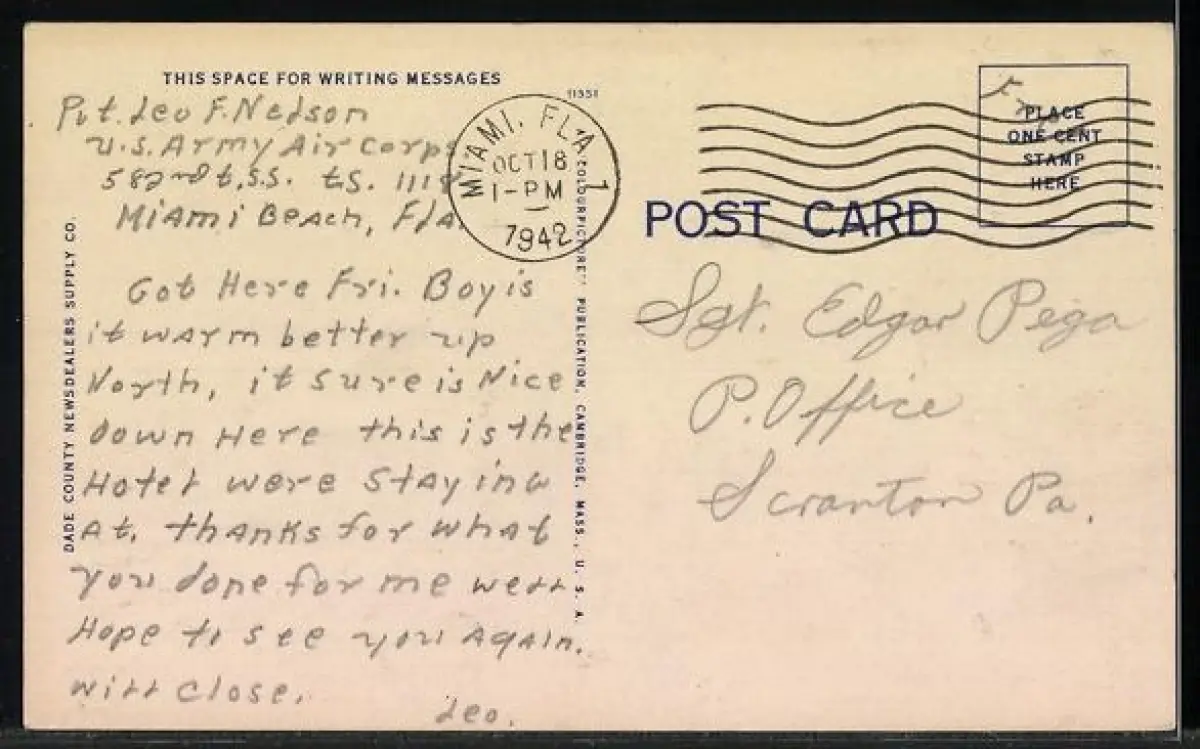 THIS SPACE FOR WRITING MESSAGES
Pvt. Leo F. Nelson
U.S. Army Air Corps
582nd t.s.s. t.s. 1118
Miami Beach, Fla.
Got Here Fri. Boy is
it warm better up
North, it sure is Nice
down Here this is the
Hotel were staying
At. thanks for what
you done for me well
Hope to see you Again.
will close.
Leo.
DADE COUNTY NEWSDEALERS SUPPLY CO.
11551
"COLOURPICTURE" PUBLICATION, CAMBRIDGE, MASS., U. S. A.
MIAMI, FLA.
OCT 18
1-PM
1942
1
PLACE
ONE CENT
STAMP
HERE
POST CARD
Sgt. Edgar Pega
P. Office
Scranton Pa.